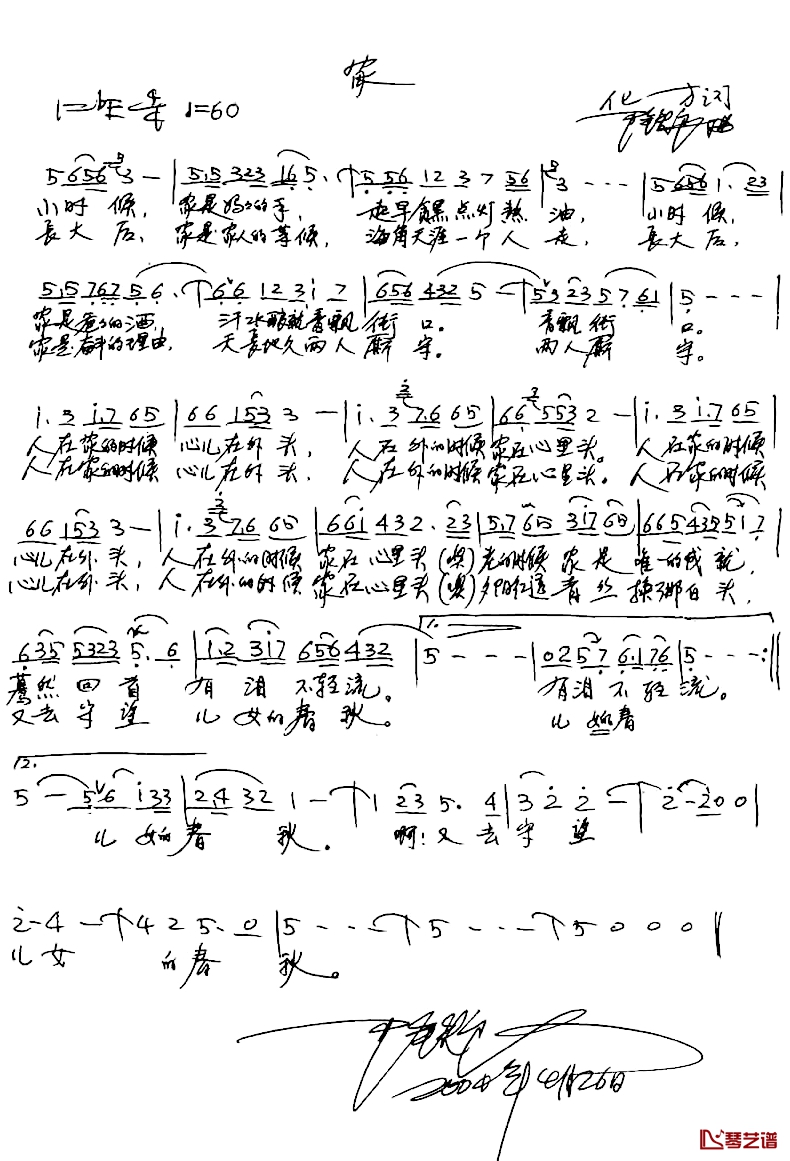 家
1=♭E 4/4 ♩=60
方词
曲
5 6 5 6 3 - | 5. 5 3 2 3 1 6 5. | 5 5 6 1 2 3 7 5 6 | 3 - - - | 5 6 5 6 1. 2 3 |
小时候， 家是妈妈的手， 走早贪黑点灯熬油， 小时候，
长大后， 家是家人的等候， 海角天涯一个人走， 长大后，
5. 5 7 6 7 5 6. | 6 6 1 2 3 i 7 | 6 5 6 4 3 2 5 - | 5 3 2 3 5 7 6 1 | 5 - - - |
家是爸爸的酒， 汗水酿就香飘街口。 香飘街口。
家是奋斗的理由， 天长地久两人厮守。 两人厮守。
i. 3 i. 7 6 5 | 6 6 1 5 3 3 - | i. 3 7. 6 6 5 | 6 6 5 5 3 2 - | i. 3 i. 7 6 5 |
人在家的时候 心儿在外头， 人在外的时候家在心里头。 人在家的时候
人在家的时候 心儿在外头， 人在外的时候家在心里头。 人在家的时候
6 6 1 5 3 3 - | i. 3 7. 6 6 5 | 6 6 i 4 3 2. 2 3 | 5. 7 6 5 3 i 7 6 5 | 6 6 5 4 3 5 5 i 7 |
心儿在外头， 人在外的时候 家在心里头（噢）老的时候 家是唯一的成就，
心儿在外头， 人在外的时候 家在心里头（噢）夕阳红透 青丝换那白头，
6 3 5 5 3 2 3 5. 6 | 1. 2 3 i 7 6 5 6 4 3 2 | 1. 5 - - - | 0 2 5 7 6. 1 7 6 | 5 - - - :||
蓦然回首 有泪不轻流。 有泪不轻流。
又去守望 儿女的春秋。 儿女的春
2.
5 - 5 6 i 3 3 | 2. 4 3 2 1 - | 1 2 3 5. 4 | 3 2 2 - | 2 - 2 0 0 |
儿女的春秋。 啊！又去守望
2 - 4 - | 4 2 5. 0 | 5 - - - | 5 - - - | 5 0 0 0 ||
儿女的春秋。
2004年4月26日
琴艺谱